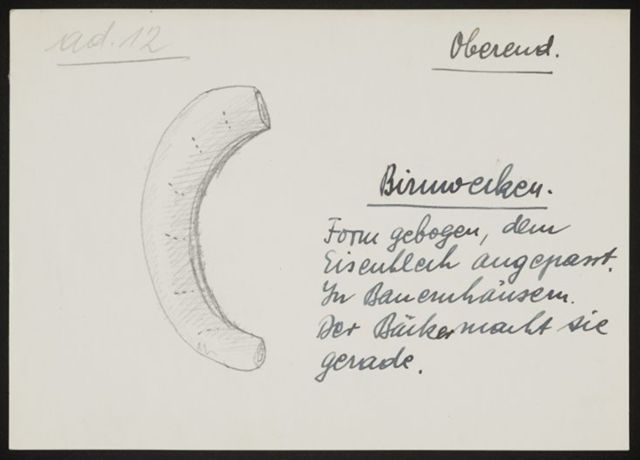 ad. 12
Oberend.
Birnwecken.
Form gebogen, dem
Eisenblech angepasst.
In Bauernhäusern.
Der Bäcker macht sie
gerade.